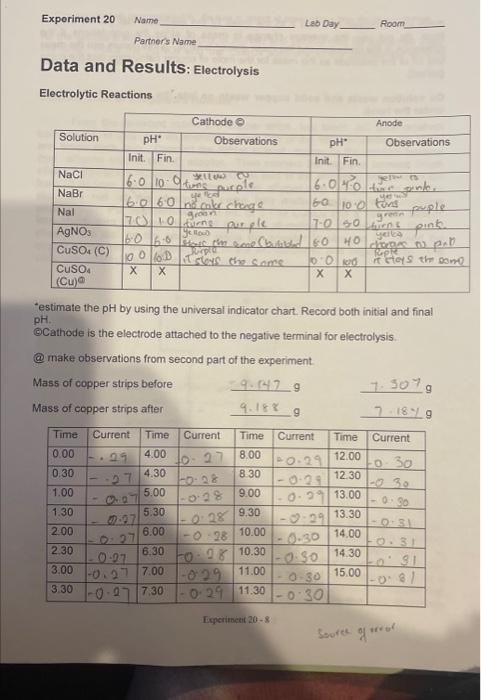 Experiment 20 Name Lab Day Room
Partner's Name
Data and Results: Electrolysis
Electrolytic Reactions
Cathode © Anode
Solution pH* Observations pH* Observations
Init. Fin. Init. Fin.
NaCl 6.0 10.0 yellow to turns purple 6.0 4.0 yellow to turn pink.
NaBr 6.0 6.0 no color change 6.0 10.0 turns
NaI 7.0 1.0 green turns purple 7.0 green turns pink
AgNO₃ 6.0 6.0 yellow stays the same 6.0 40 yellow change to
CuSO₄ (C) 10.0 10.0 purple it stays the same 10.0 10.0 purple it stays the same
CuSO₄ (Cu)@ X X X X
*estimate the pH by using the universal indicator chart. Record both initial and final
pH.
©Cathode is the electrode attached to the negative terminal for electrolysis.
@ make observations from second part of the experiment.
Mass of copper strips before 9.147 g 7.307 g
Mass of copper strips after 9.188 g 7.187 g
Time Current Time Current Time Current Time Current
0.00 -.29 4.00 -0.27 8.00 -0.29 12.00 -0.30
0.30 -.27 4.30 -0.28 8.30 -0.29 12.30 -0.30
1.00 -0.27 5.00 -0.28 9.00 -0.29 13.00 -0.30
1.30 -0.27 5.30 -0.28 9.30 -0.29 13.30 -0.31
2.00 -0.27 6.00 -0.28 10.00 -0.30 14.00 -0.31
2.30 -0.27 6.30 -0.28 10.30 -0.30 14.30 -0.31
3.00 -0.27 7.00 -0.29 11.00 -0.30 15.00 -0.31
3.30 -0.27 7.30 -0.29 11.30 -0.30
Experiment 20 - 8
Source of error